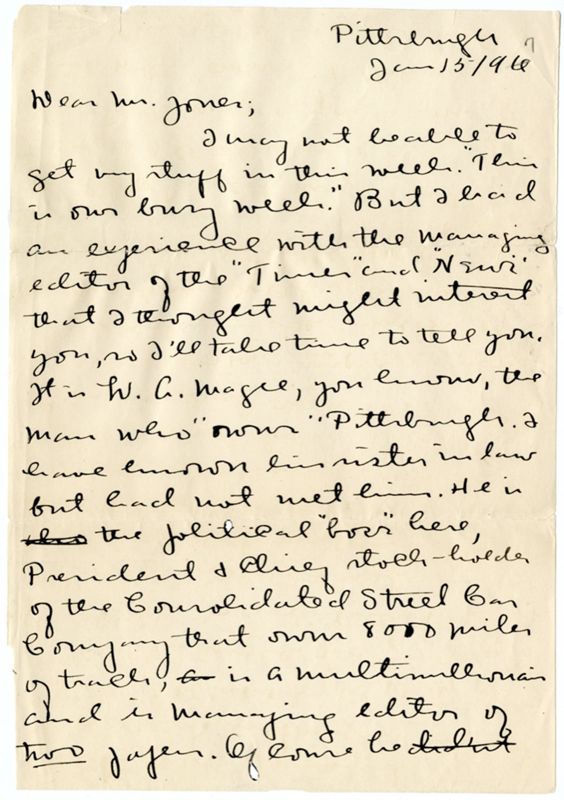 Pittsburgh
Jan 15/96
Dear Mr. Jones;
I may not be able to
get my stuff in this week. "This
is our busy week." But I had
an experience with the managing
editor of the "Times" and "News"
that I thought might interest
you, so I'll take time to tell you.
It is W. A. Magee, you know, the
man who "owns" Pittsburgh. I
have known his sister in law
but had not met him. He is
the political "boss" here,
President & chief stock-holder
of the Consolidated Street Car
Company that owns 8000 miles
of track, is a multimillionair
and is managing editor of
two papers. Of course he didn't